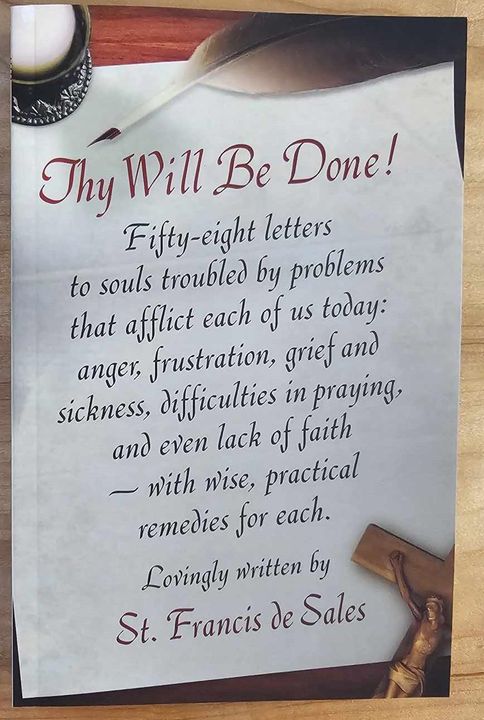 Thy Will Be Done!
Fifty-eight letters
to souls troubled by problems
that afflict each of us today:
anger, frustration, grief and
sickness, difficulties in praying,
and even lack of faith
— with wise, practical
remedies for each.
Lovingly written by
St. Francis de Sales